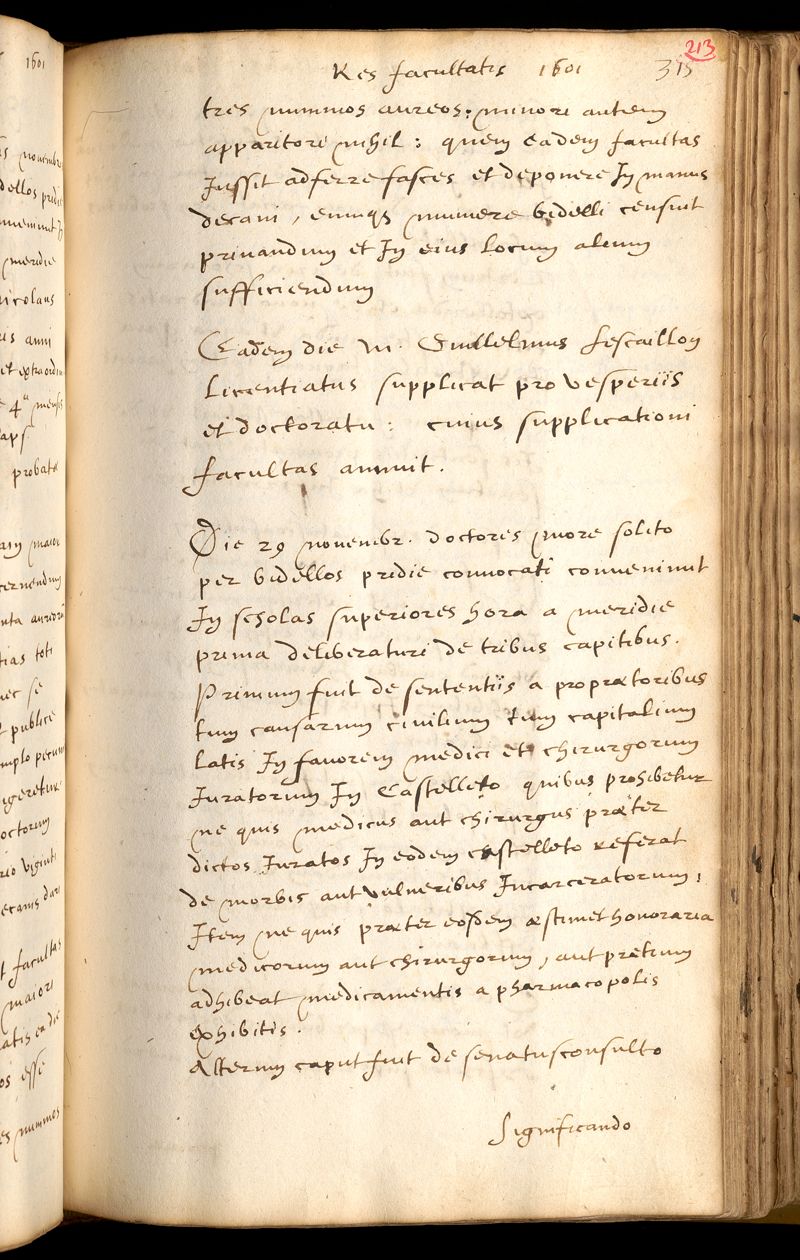 1601
213
Res facultatis 1601 315
tres nummos aureos; minori autem
apparitori nihil : quem eadem facultas
Jussit adferre fasces et deponere In manus
decani, eumq3 munere bidelli censuit
priuandum et In eius locum alium
sufficiendum
Eadem die M. Guillelmus Lescaillon
Licentiatus supplicat pro vesperiis
et doctoratu : cuius supplicationi
facultas annuit.
Die 29 nouembr. doctores more solito
per bidellos pridie conuocati conuenirunt
In scholas superiores hora a meridie
prima deliberaturi de tribus capitibus.
Primum fuit de sententiis a propraetoribus
tum causarum ciuilium tum capitalium
latis In fauorem medici et chirurgorum
Iuratorum In Castelleto quibus prohibetur
ne quis medicus aut chirurgus praeter
dictos Iuratos In eodem castelleto referat
de morbis aut vulneribus Incarceratorum ;
Item ne quis praeter eosdem aestimet honoraria
medicorum aut chirurgorum, aut pretium
adhibeat medicamentis a pharmacopolis
exhibitis.
Alterum caput fuit de senatusconsulto
Significando
s nouembr
dellos pridie
meridie
nicolaus
anni
et extraordin
4a mensis
probat
maior
cernendum
aureoru
tias toti
nec se
publice
mplo pecun
igeretur
octorum
rio viginti
ecanis dari
t facultas
maiori
os esse
es nummos